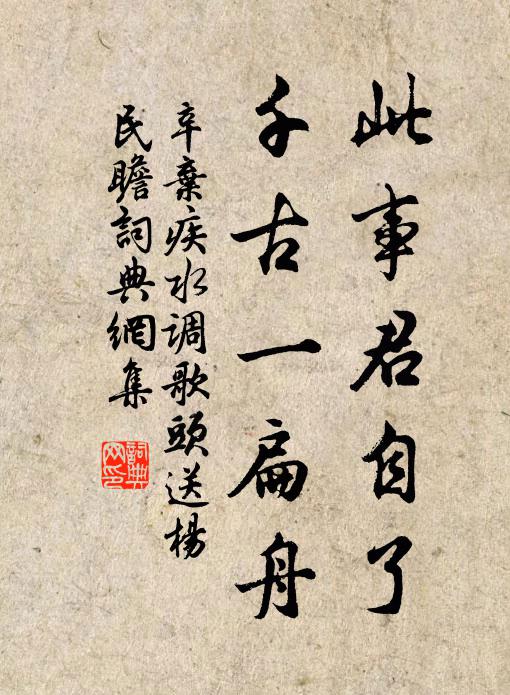 此事君自了
千古一扁舟
辛棄疾水调歌頭送楊
民瞻詞典網集
詞典
网印